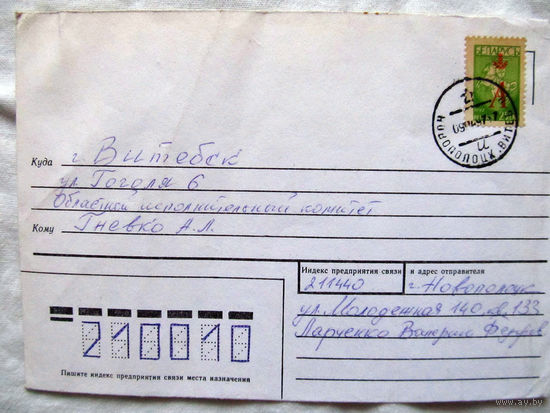 БЕЛАРУСЬ
А
Куда г. Витебск
ул Гоголя 6
Областной исполнительный комитет
Кому Гневко А.Л.
Индекс предприятия связи и адрес отправителя
211440 г. Новополоцк
ул. Молодежная 140 кв. 133
Ларченко Валерий
210010
Пишите индекс предприятия связи места назначения
www.ay.by